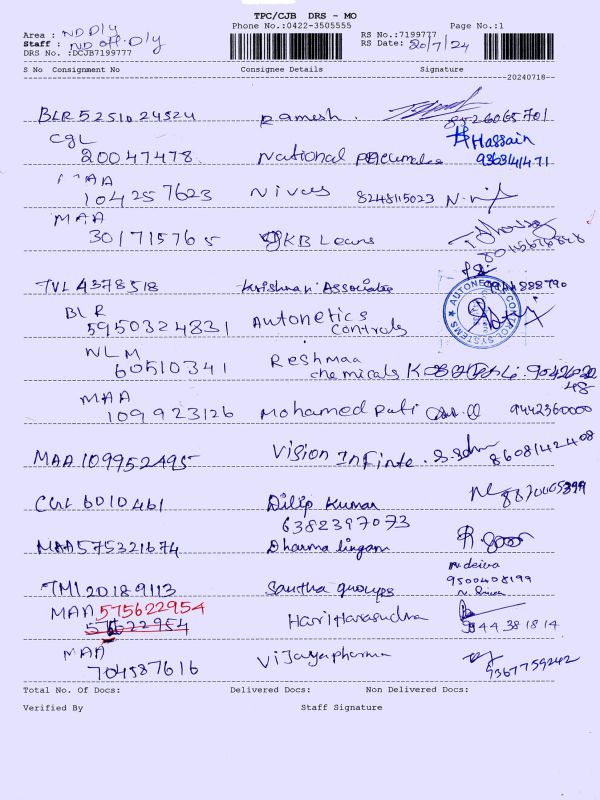 TPC/CJB DRS - MO
Phone No.:0422-3505555 Page No.:1
Area : ND Dly
Staff : ND off. Dly
DRS No. :DCJB7199777
RS No.:7199777
RS Date: 20/7/24
S No Consignment No Consignee Details Signature
20240718
BLR 5251024524 Ramesh. 8526065701
CGL Hassain
20047478 National 9363141471
MAA
104257623 Nivas 8248115023
MAA
301715765 GKB Lens
TVL 4378518 Krishnan Associates 9944888790
BLR AUTONETIC CONTROL SYSTEMS
5950324831 Autonetics
Controls
NLM Reshmaa
60510341 chemicals
48
MAA
109923126 Mohamed 9442360000
MAA 109952495 Vision Infinte 8608142408
CGL 6010461 Dilip Kumar
6382397073
MAA 575321674 Dharma lingam
N. deiva
TMI 20189113 Santha groups 9500408199
MAA 575622954
575622954 Hariharasudha 9944 38 18 14
MAA
704587616 Vijayapharma 9367759242
Total No. Of Docs: Delivered Docs: Non Delivered Docs:
Verified By Staff Signature